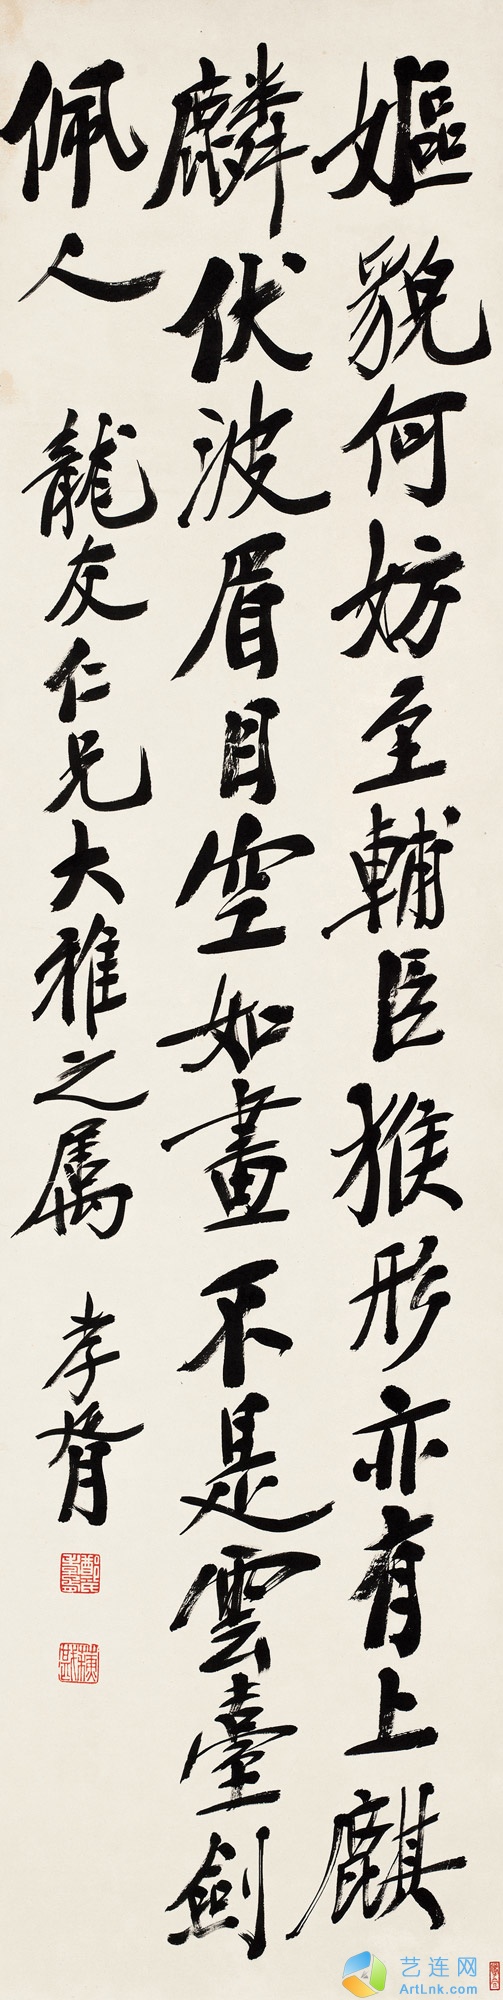 嫗貌何妨至輔臣猴形亦有上麒
麟伏波眉目空如畫不是雲臺劍
佩人
龍友仁兄大雅之屬
孝胥
艺连网
ArtLnk.com